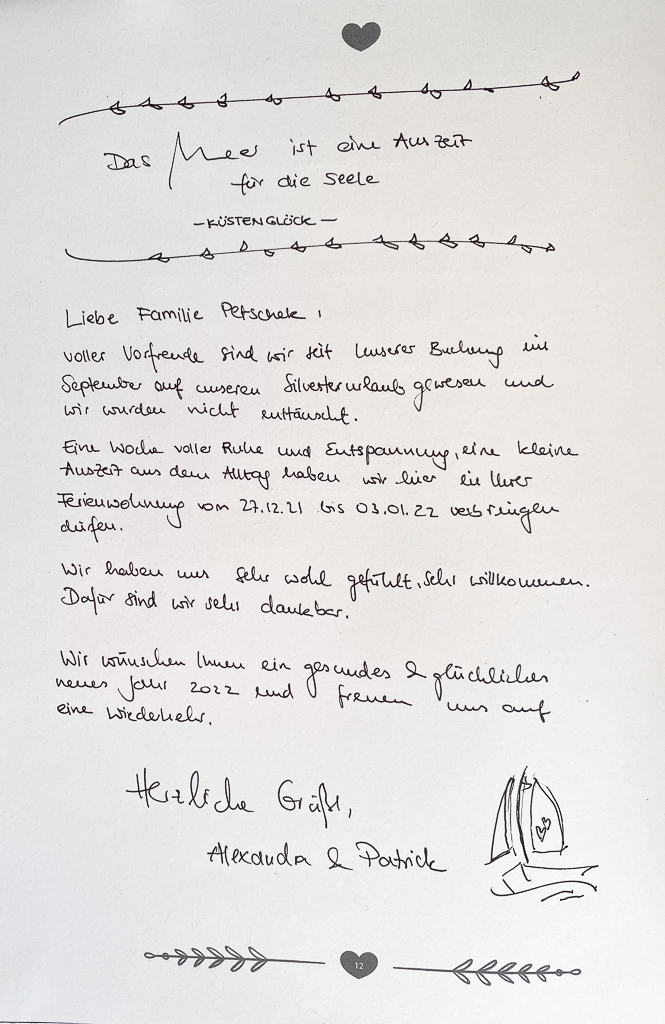 Das Meer ist eine Auszeit
für die Seele
– KÜSTENGLÜCK –
Liebe Familie Petschek,
voller Vorfreude sind wir seit unserer Buchung im
September auf unseren Silvesterurlaub gewesen und
wir wurden nicht enttäuscht.
Eine Woche voller Ruhe und Entspannung, eine kleine
Auszeit aus dem Alltag haben wir hier in Ihrer
Ferienwohnung vom 27.12.21 bis 03.01.22 verbringen
dürfen.
Wir haben uns sehr wohl gefühlt, sehr willkommen.
Dafür sind wir sehr dankbar.
Wir wünschen Ihnen ein gesundes & glückliches
neues Jahr 2022 und freuen uns auf
eine Wiederkehr.
Herzliche Grüße,
Alexandra & Patrick
12